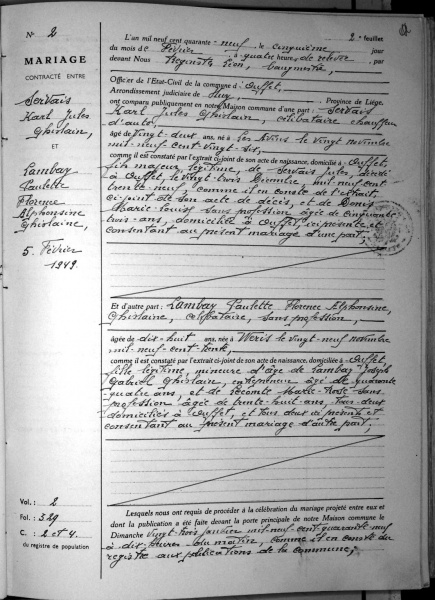 N° 2
2e feuillet
MARIAGE
CONTRACTÉ ENTRE
Servais
Karl Jules
Ghislain,
ET
Lambay
Paulette
Florence
Alphonsine
Ghislaine,
5 Février
1949.
L'un mil neuf cent quarante-neuf, le cinquième jour
du mois de Février à quatre heures de relevée,
devant Nous Léon, bourgmestre,
Officier de l'Etat-Civil de la commune d'Ouffet,
Arrondissement judiciaire de Huy, Province de Liége,
ont comparu publiquement en notre Maison commune d'une part: Servais
Karl Jules Ghislain, célibataire chauffeur
d'auto,
âgé de vingt-deux ans, né à Les Avins le vingt novembre
mil-neuf-cent-vingt-six,
comme il est constaté par l'extrait ci-joint de son acte de naissance, domicilié à Ouffet,
fils majeur légitime, de Servais Jules, décédé
à Ouffet, le vingt-trois Décembre mil-neuf-cent
trente-neuf, comme il en conste de l'extrait
ci-joint de son acte de décès, et de Denis
Marie-Louise sans profession âgée de cinquante-
trois-ans, domiciliée à Ouffet, ici présente et
consentant au présent mariage d'une part,
Et d'autre part: Lambay Paulette Florence Alphonsine,
Ghislaine, célibataire, sans profession,
âgée de dix-huit ans, née à Wéris le vingt-neuf novembre
mil-neuf-cent-trente,
comme il est constaté par l'extrait ci-joint de son acte de naissance, domiciliée à Ouffet,
fille légitime, mineure d'âge de Lambay Joseph
Gabriel Ghislain, entrepreneur âgé de quarante-
quatre ans, et de Lecomte Marie-Rose sans
profession âgée de trente-huit-ans, tous deux
domiciliés à Ouffet, et tous deux ici présents et
consentant au présent mariage d'autre part,
Lesquels nous ont requis de procéder à la célébration du mariage projeté entre eux et
dont la publication a été faite devant la porte principale de notre Maison commune le
Dimanche vingt-trois janvier mil-neuf-cent-quarante-neuf
à dix-heures du matin, comme il en conste du
registre aux publications de la commune;
Vol.: 2
Fol.: 329
C.: 2 et 4.
du registre de population